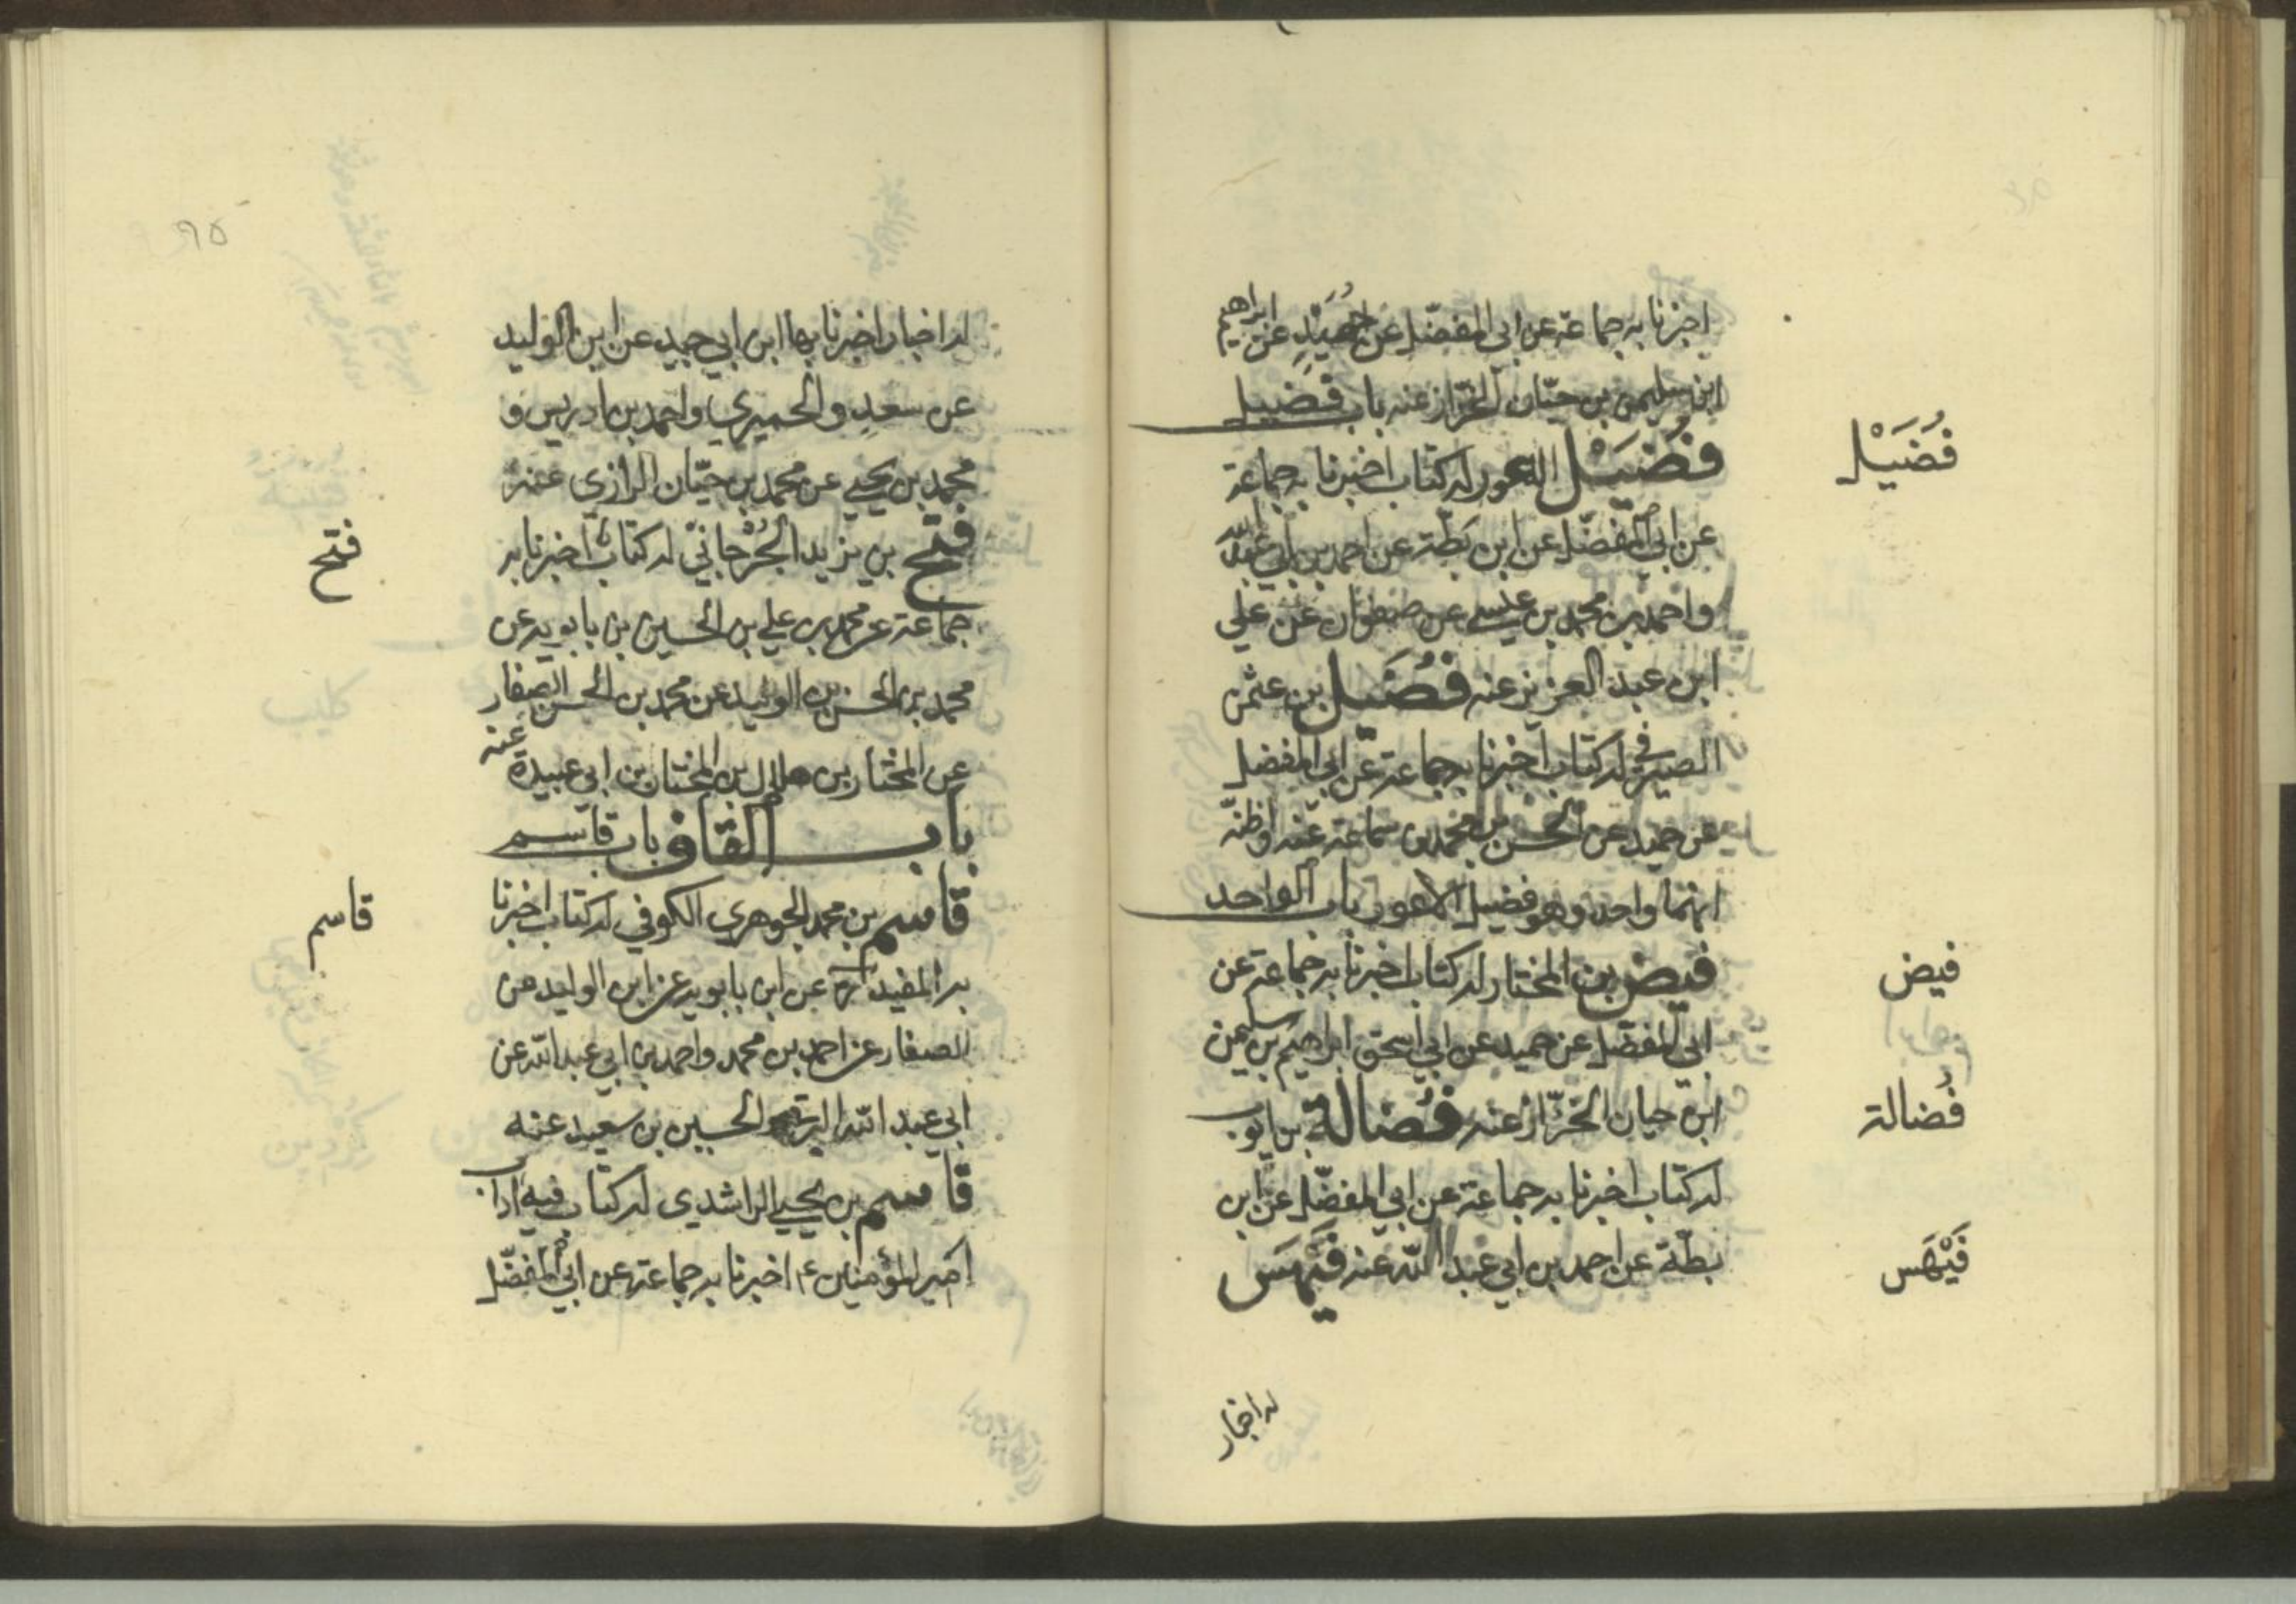 اخبرنا به جماعة عن ابى المفضّل عن حُمَيْدٍ عن ابراهيم
ابن سليمن بن حيّان الخزّاز عنه باب فُضيل
فُضَيْل
فُضَيْل الاعور له كتاب اخبرنا به جماعة
عن ابى المفضّل عن ابن بَطّة عن احمد بن ابى عبد الله
واحمد بن محمد بن عيسى عن صفوان عن علي
ابن عبد العزيز عنه فُضَيل بن عثمن
الصيرفي له كتاب اخبرنا به جماعة عن ابى المفضل
عن حميد عن الحسن بن محمد بن سماعة عنه واظنّه
انهما واحد وهو فضيل الاعور باب الواحد
فيض
فيض بن المختار له كتاب اخبرنا به جماعة عن
ابى المفضّل عن حميد عن ابى اسحق ابراهيم بن سليمن
فُضالة
ابن حيان الخزّاز عنه فُضالة بن ايوب
له كتاب اخبرنا به جماعة عن ابي المفضّل عن ابن
فَيْهَس
بطّة عن احمد بن ابي عبد الله عنه فَيْهَس
له اخبار
٩٥
له اخبار اخبرنا بها ابن ابي جيد عن ابن الوليد
عن سعدٍ والحميري واحمد بن ادريس و
محمد بن يحيى عن محمد بن حيّان الرازي عنه
فتح
فتح بن يزيد الجُرْجانيّ له كتابٌ اخبرنا به
جماعة عن محمد بن علي بن الحسين بن بابويه عن
محمد بن الحسن بن الوليد عن محمد بن الحسن الصفار
عن المختار بن هلال بن المختار بن ابي عبيدة عنه
باب القاف باب قاسم
قاسم
قاسم بن محمد الجوهري الكوفي له كتاب اخبرنا
به المفيد ره عن ابن بابويه عن ابن الوليد عن
الصفار عن احمد بن محمد واحمد بن ابي عبد الله عن
ابي عبد الله البرقي والحسين بن سعيد عنه
قاسم بن يحيى الراشدي له كتاب فيه اداب
امير المؤمنين ع اخبرنا به جماعة عن ابي المفضّل